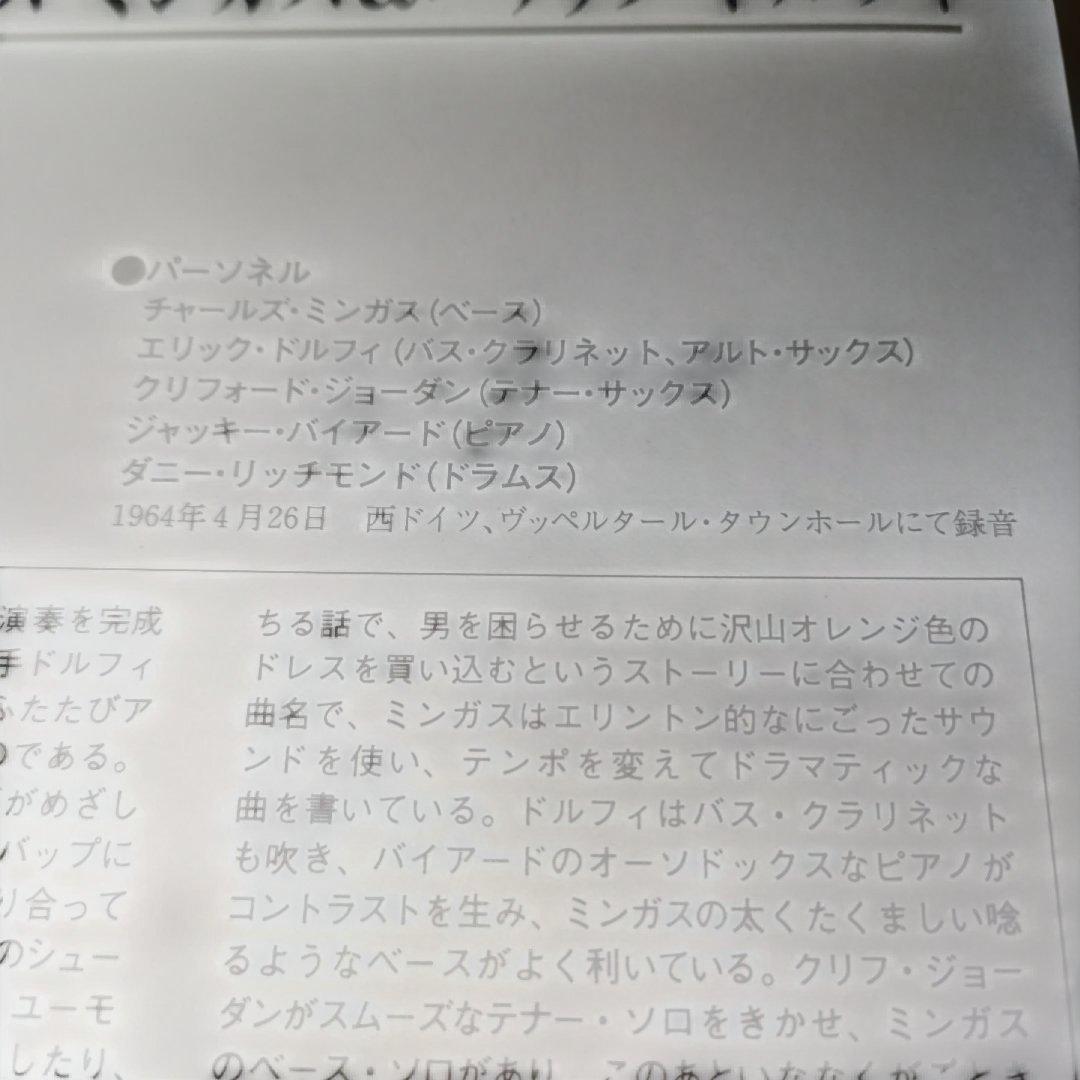 ●パーソネル
チャールズ・ミンガス(ベース)
エリック・ドルフィ(バス・クラリネット、アルト・サックス)
クリフォード・ジョーダン(テナー・サックス)
ジャッキー・バイアード(ピアノ)
ダニー・リッチモンド(ドラムス)
1964年4月26日 西ドイツ、ヴッペルタール・タウンホールにて録音
演奏を完成
手ドルフィ
ふたたびア
のである。
がめざし
バップに
り合って
のシュー
ユーモ
したり、
ちる話で、男を困らせるために沢山オレンジ色の
ドレスを買い込むというストーリーに合わせての
曲名で、ミンガスはエリントン的なにごったサウ
ンドを使い、テンポを変えてドラマティックな
曲を書いている。ドルフィはバス・クラリネット
も吹き、バイアードのオーソドックスなピアノが
コントラストを生み、ミンガスの太くたくましい唸
るようなベースがよく利いている。クリフ・ジョー
ダンがスムーズなテナー・ソロをきかせ、ミンガス
のベース・ソロがあり、このあといななくがごとき